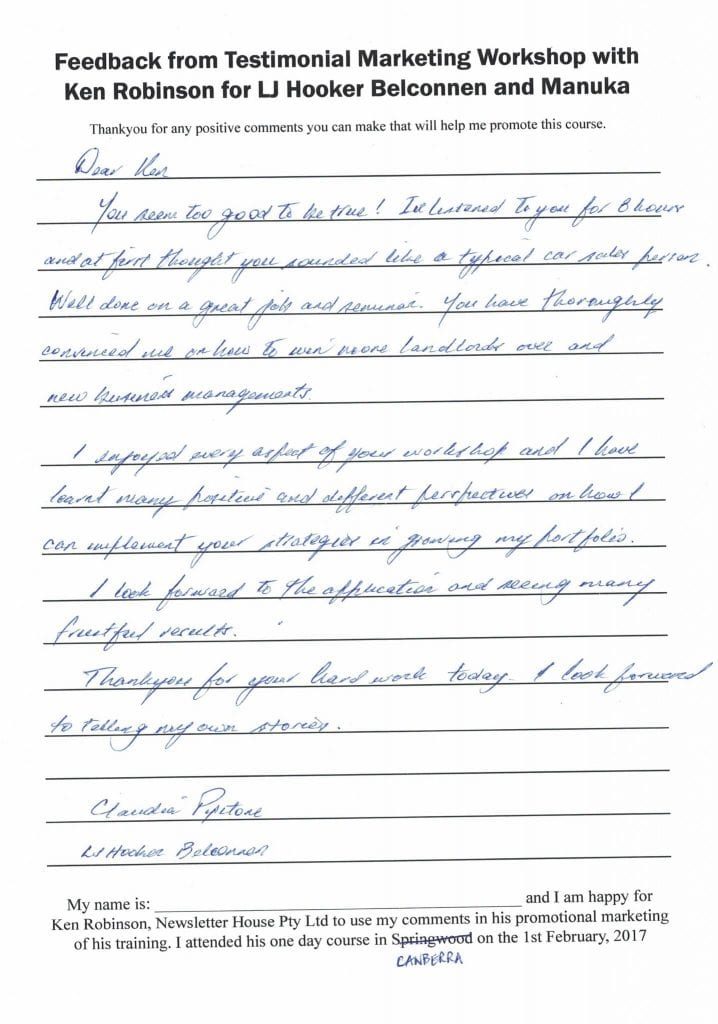 Feedback from Testimonial Marketing Workshop with
Ken Robinson for LJ Hooker Belconnen and Manuka
Thankyou for any positive comments you can make that will help me promote this course.
Dear Ken
You seem too good to be true! I've listened to you for 8 hours
and at first thought you sounded like a typical car sales person.
Well done on a great job and seminar. You have thoroughly
convinced me on how to win more landlords over and
new business managements.
I enjoyed every aspect of your workshop and I have
learnt many positive and different perspectives on how I
can implement your strategies in growing my portfolio.
I look forward to the application and seeing many
fruitful results.
Thankyou for your hard work today. I look forward
to telling my own stories.
Claudia
LJ Hooker Belconnen
My name is: and I am happy for
Ken Robinson, Newsletter House Pty Ltd to use my comments in his promotional marketing
of his training. I attended his one day course in Springwood on the 1st February, 2017
CANBERRA